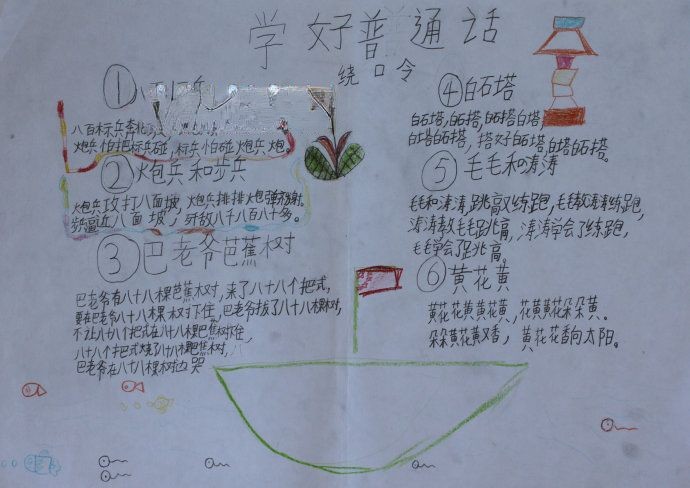 学好普通话
绕口令
① 八
八百标兵奔北
炮兵怕把标兵碰,标兵怕碰炮兵炮。
② 炮兵和步兵
炮兵攻打八面坡,炮兵排排炮弹
步兵逼近八面坡,歼敌八千八百八十多。
③ 巴老爷芭蕉树
巴老爷有八十八棵芭蕉树,来了八十八个把式,
要在巴老爷八十八棵 树下住,巴老爷拔了八十八棵树,
不让八十八个把式在八十八棵芭蕉树住,
八十八个把式烧了八十八棵芭蕉树,
巴老爷在八十八棵树边哭
④ 白石塔
白石塔,白石搭,白石搭白塔,
白塔白石搭,搭好白石塔,白塔白石塔。
⑤ 毛毛和涛涛
毛毛和涛涛,跳高又练跑,毛毛教涛涛练跑,
涛涛教毛毛跳高,涛涛学会了练跑,
毛毛学会了跳高。
⑥ 黄花黄
黄花花黄黄花黄,花黄黄花朵朵黄。
朵朵黄花黄又香,黄花花香向太阳。